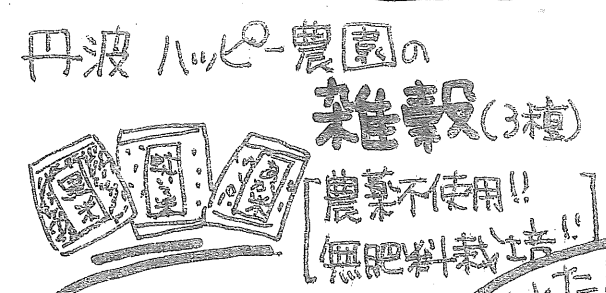 丹波 ハッピー農園の
雑穀(3種)
農薬不使用!!
無肥料栽培!!